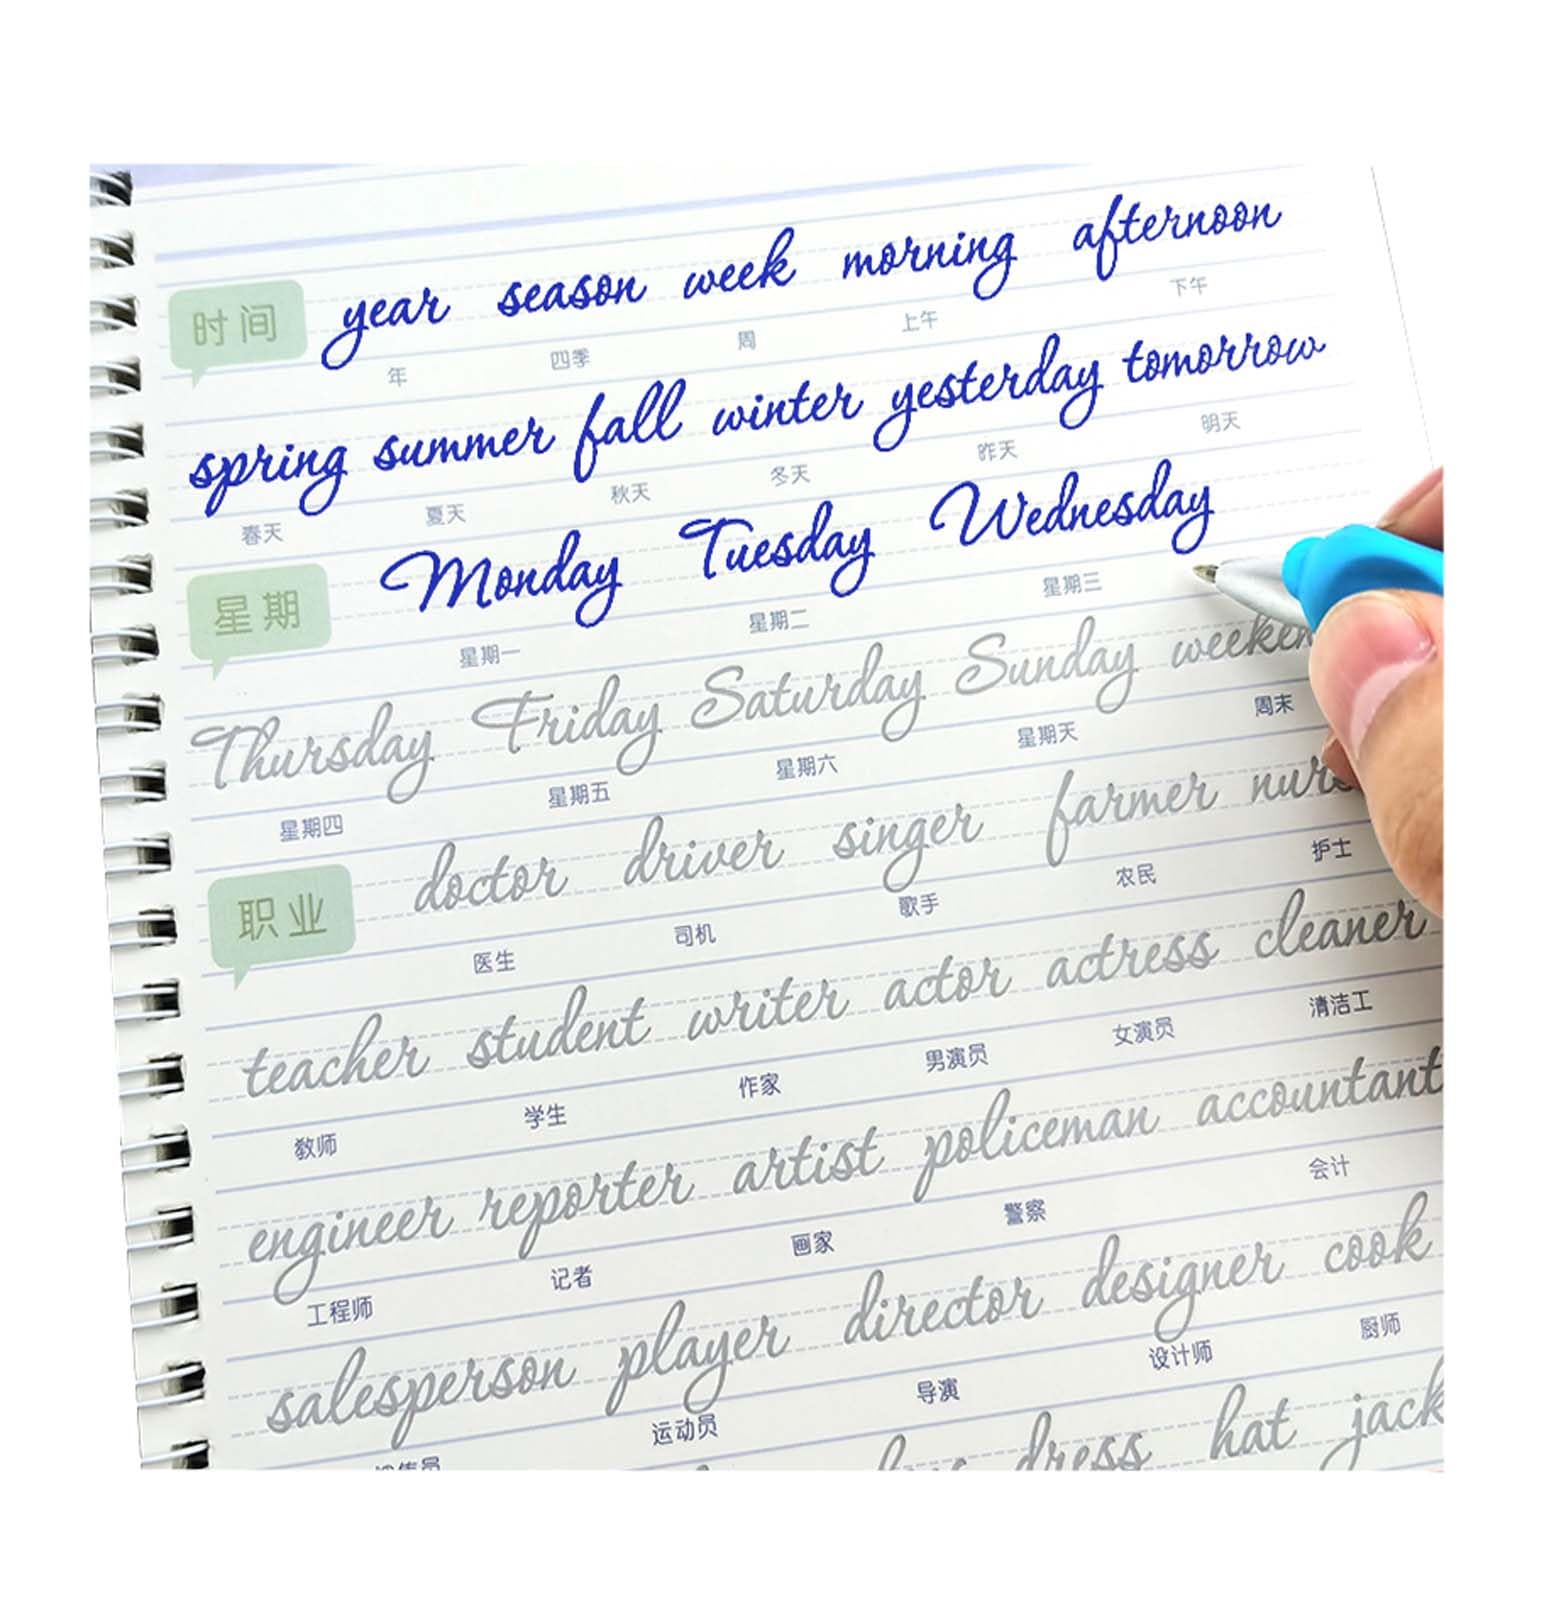 时间 year season week morning afternoon
年 四季 周 上午 下午
spring summer fall winter yesterday tomorrow
春天 夏天 秋天 冬天 昨天 明天
星期 Monday Tuesday Wednesday
星期一 星期二 星期三
Thursday Friday Saturday Sunday
星期四 星期五 星期六 星期天 周末
职业 doctor driver singer farmer
医生 司机 歌手 农民 护士
teacher student writer actor actress cleaner
教师 学生 作家 男演员 女演员 清洁工
engineer reporter artist policeman accountant
工程师 记者 画家 警察 会计
salesperson player director designer cook
运动员 导演 设计师 厨师
dress hat jack